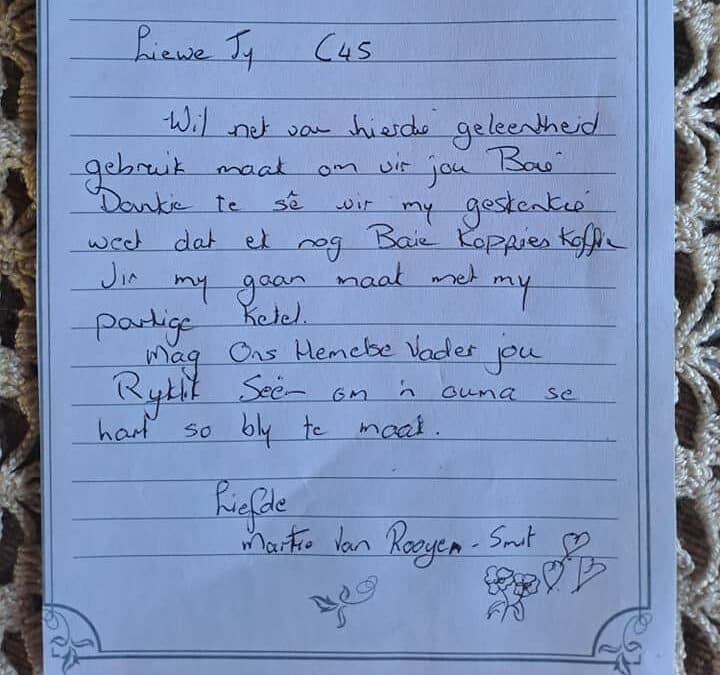 Liewe Ty C45
Wil net van hierdie geleentheid
gebruik maak om vir jou Baie
Dankie te sê vir my geskenkie
weet dat ek nog Baie Koppies Koffie
Vir my gaan maak met my
pragtige Ketel.
Mag Ons Hemelse Vader jou
Ryklik Seën om 'n ouma se
hart so bly te maak.
Liefde
Van Rooyen - Smit